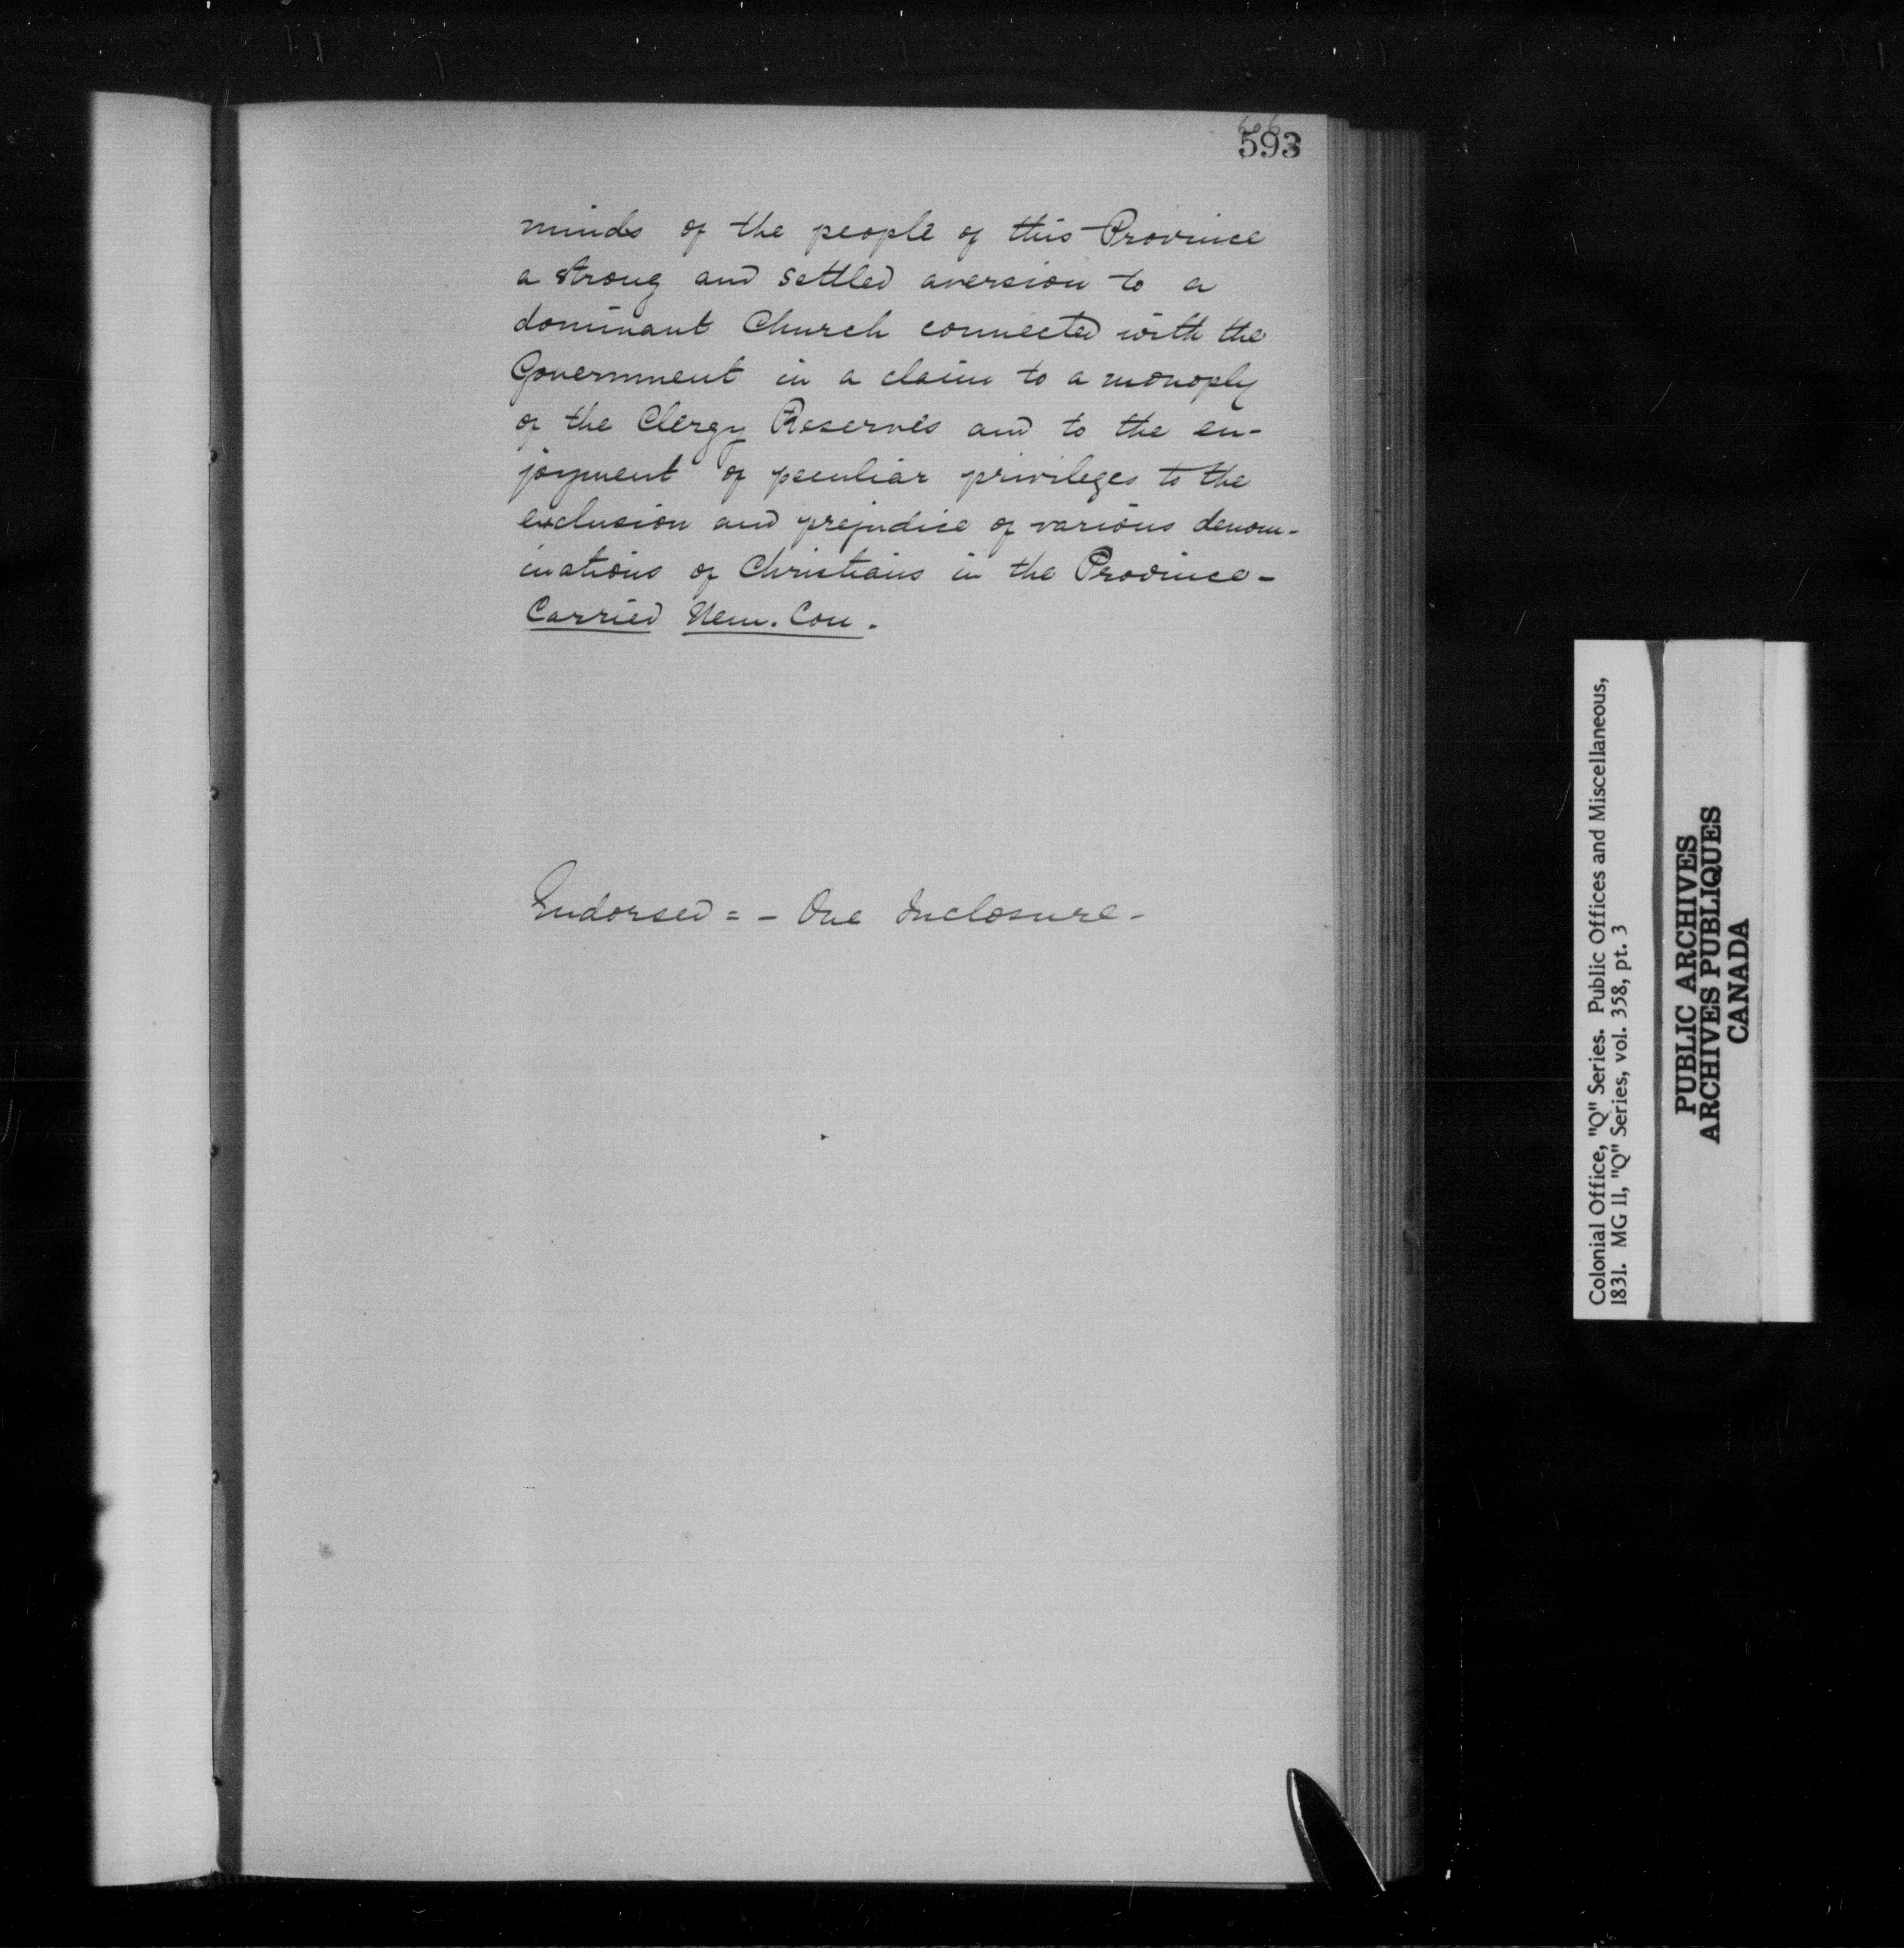 606
593
minds of the people of this Province
a strong and settled aversion to a
dominant Church connected with the
Government in a claim to a monoply
of the Clergy Reserves and to the en-
joyment of peculiar privileges to the
exclusion and prejudice of various denom-
inations of Christians in the Province -
Carried Nem. Con.
Endorsed = - One Inclosure -
Colonial Office, "Q" Series. Public Offices and Miscellaneous,
1831. MG 11, "Q" Series, vol. 358, pt. 3
PUBLIC ARCHIVES
ARCHIVES PUBLIQUES
CANADA